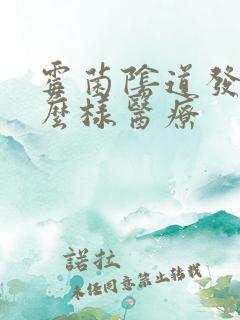 霉菌陰道發
麼樣醫療
諾拉
未经同意禁止转载